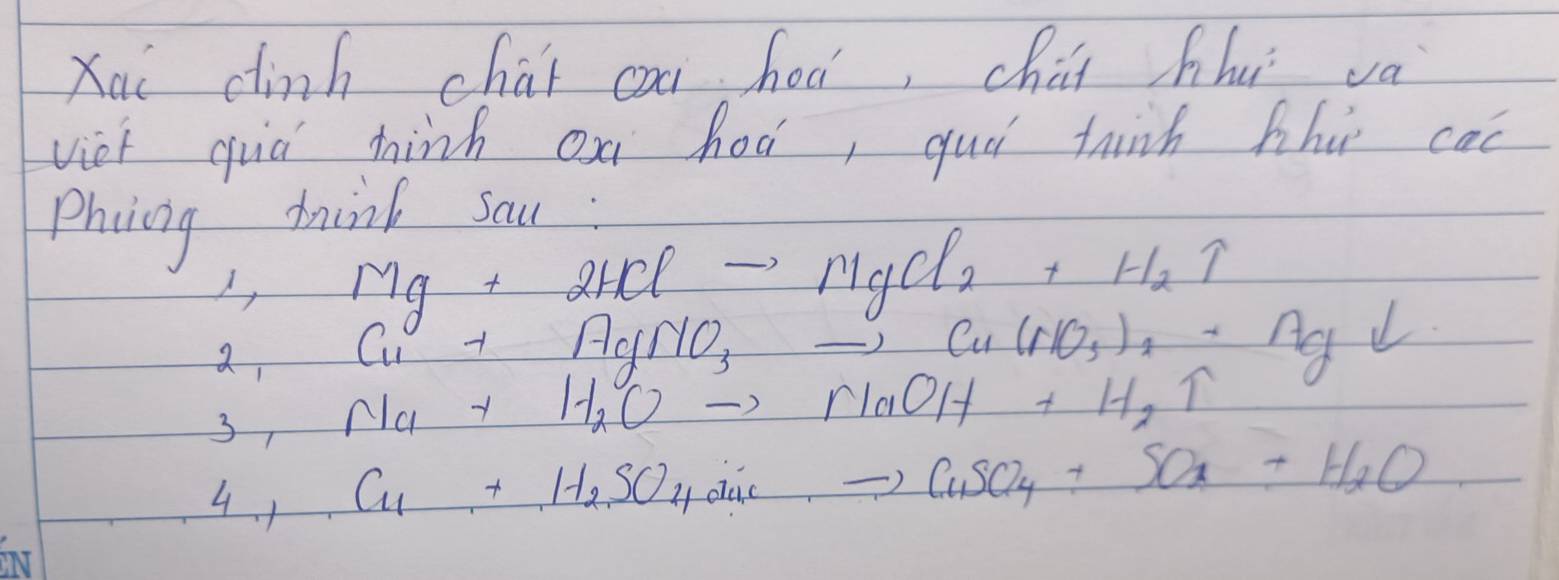 Xác định chất oxi hoá, chất khử và
viết quá trình oxi hoá, quá trình khử các
Phương trình sau:
1, Mg + 2HCl → MgCl₂ + H₂↑
2, Cu + AgNO₃ → Cu(NO₃)₂ + Ag↓
3, Na + H₂O → NaOH + H₂↑
4, Cu + H₂SO₄ đặc → CuSO₄ + SO₂ + H₂O
ẾN